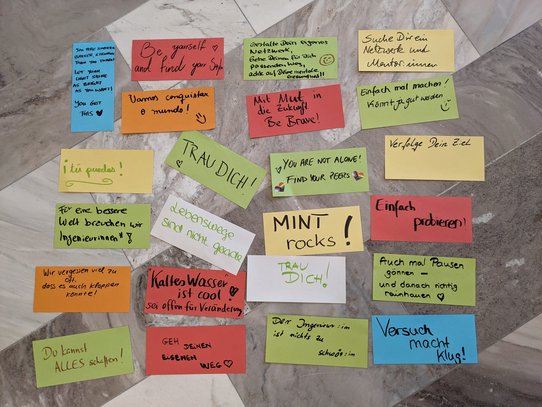 YOU ARE
THAN YOU THINK!
LET YOUR
LIGHT SHINE
AS BRIGHT
AS YOU WANT!
YOU GOT
THIS ♥
Be yourself ♡
and find your
Gestalte Dein eigenes
Netzwerk,
Gehe Deinen für Dich
passenden Weg,
achte auf Deine mentale
Gesundheit!!
Suche Dir ein
Netzwerk und
Mentor:innen
Vamos conquistar
o mundo!
Mit Mut in
die Zukunft.
Be Brave!
Einfach mal machen!
Könnt ja gut werden
¡tú puedes!
TRAU DICH!
YOU ARE NOT ALONE!
FIND YOUR PEERS
Verfolge Dein Ziel
Für eine bessere
Welt brauchen wir
Ingenieurinnen!
Lebenswege
sind nicht gerade
MINT
rocks!
Einfach
probieren!
Wir vergessen viel zu
oft,
dass es auch klappen
könnte!
Kaltes Wasser
ist cool!
sei offen für Veränderung
TRAU
DICH!
Auch mal Pausen
gönnen –
und danach richtig
reinhauen ♡
Du kannst
ALLES schaffen!
GEH DEINEN
EIGENEN
WEG ♡
Der Ingenieur:in
ist nichts zu
schwör:in
Versuch
macht
klug!